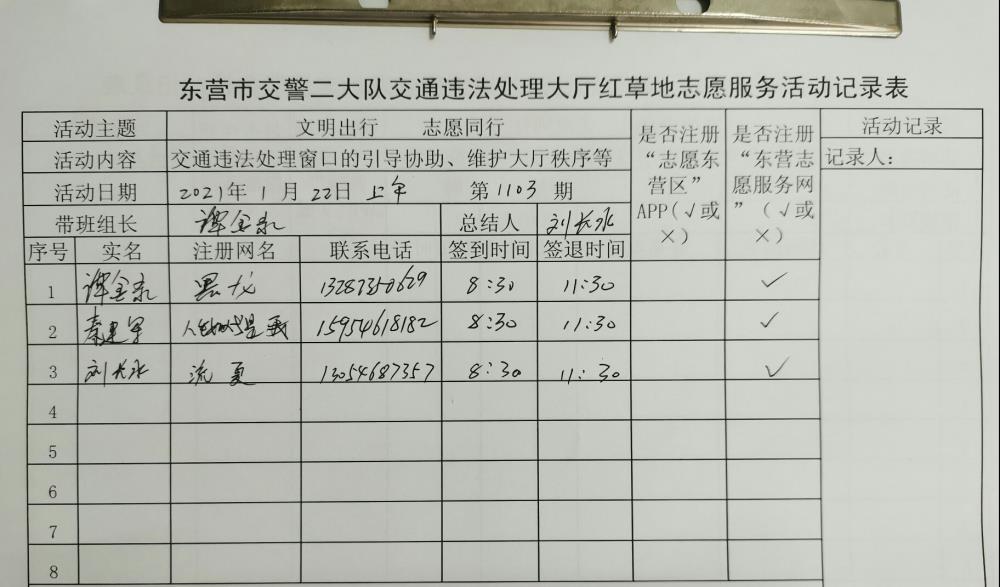 东营市交警二大队交通违法处理大厅红草地志愿服务活动记录表
活动主题 文明出行 志愿同行 是否注册“志愿东营区”APP(√或×) 是否注册“东营志愿服务网”（√或×） 活动记录
活动内容 交通违法处理窗口的引导协助、维护大厅秩序等 记录人：
活动日期 2021年 1 月 22日 上午 第 1103 期
带班组长 谭金泉 总结人 刘长水
序号 实名 注册网名 联系电话 签到时间 签退时间
1 谭金泉 黑龙 8:30 11:30 ✓
2 秦建军 15954618182 8:30 11:30 ✓
3 刘长水 流夏 13054687357 8:30 11:30 ✓
4
5
6
7
8